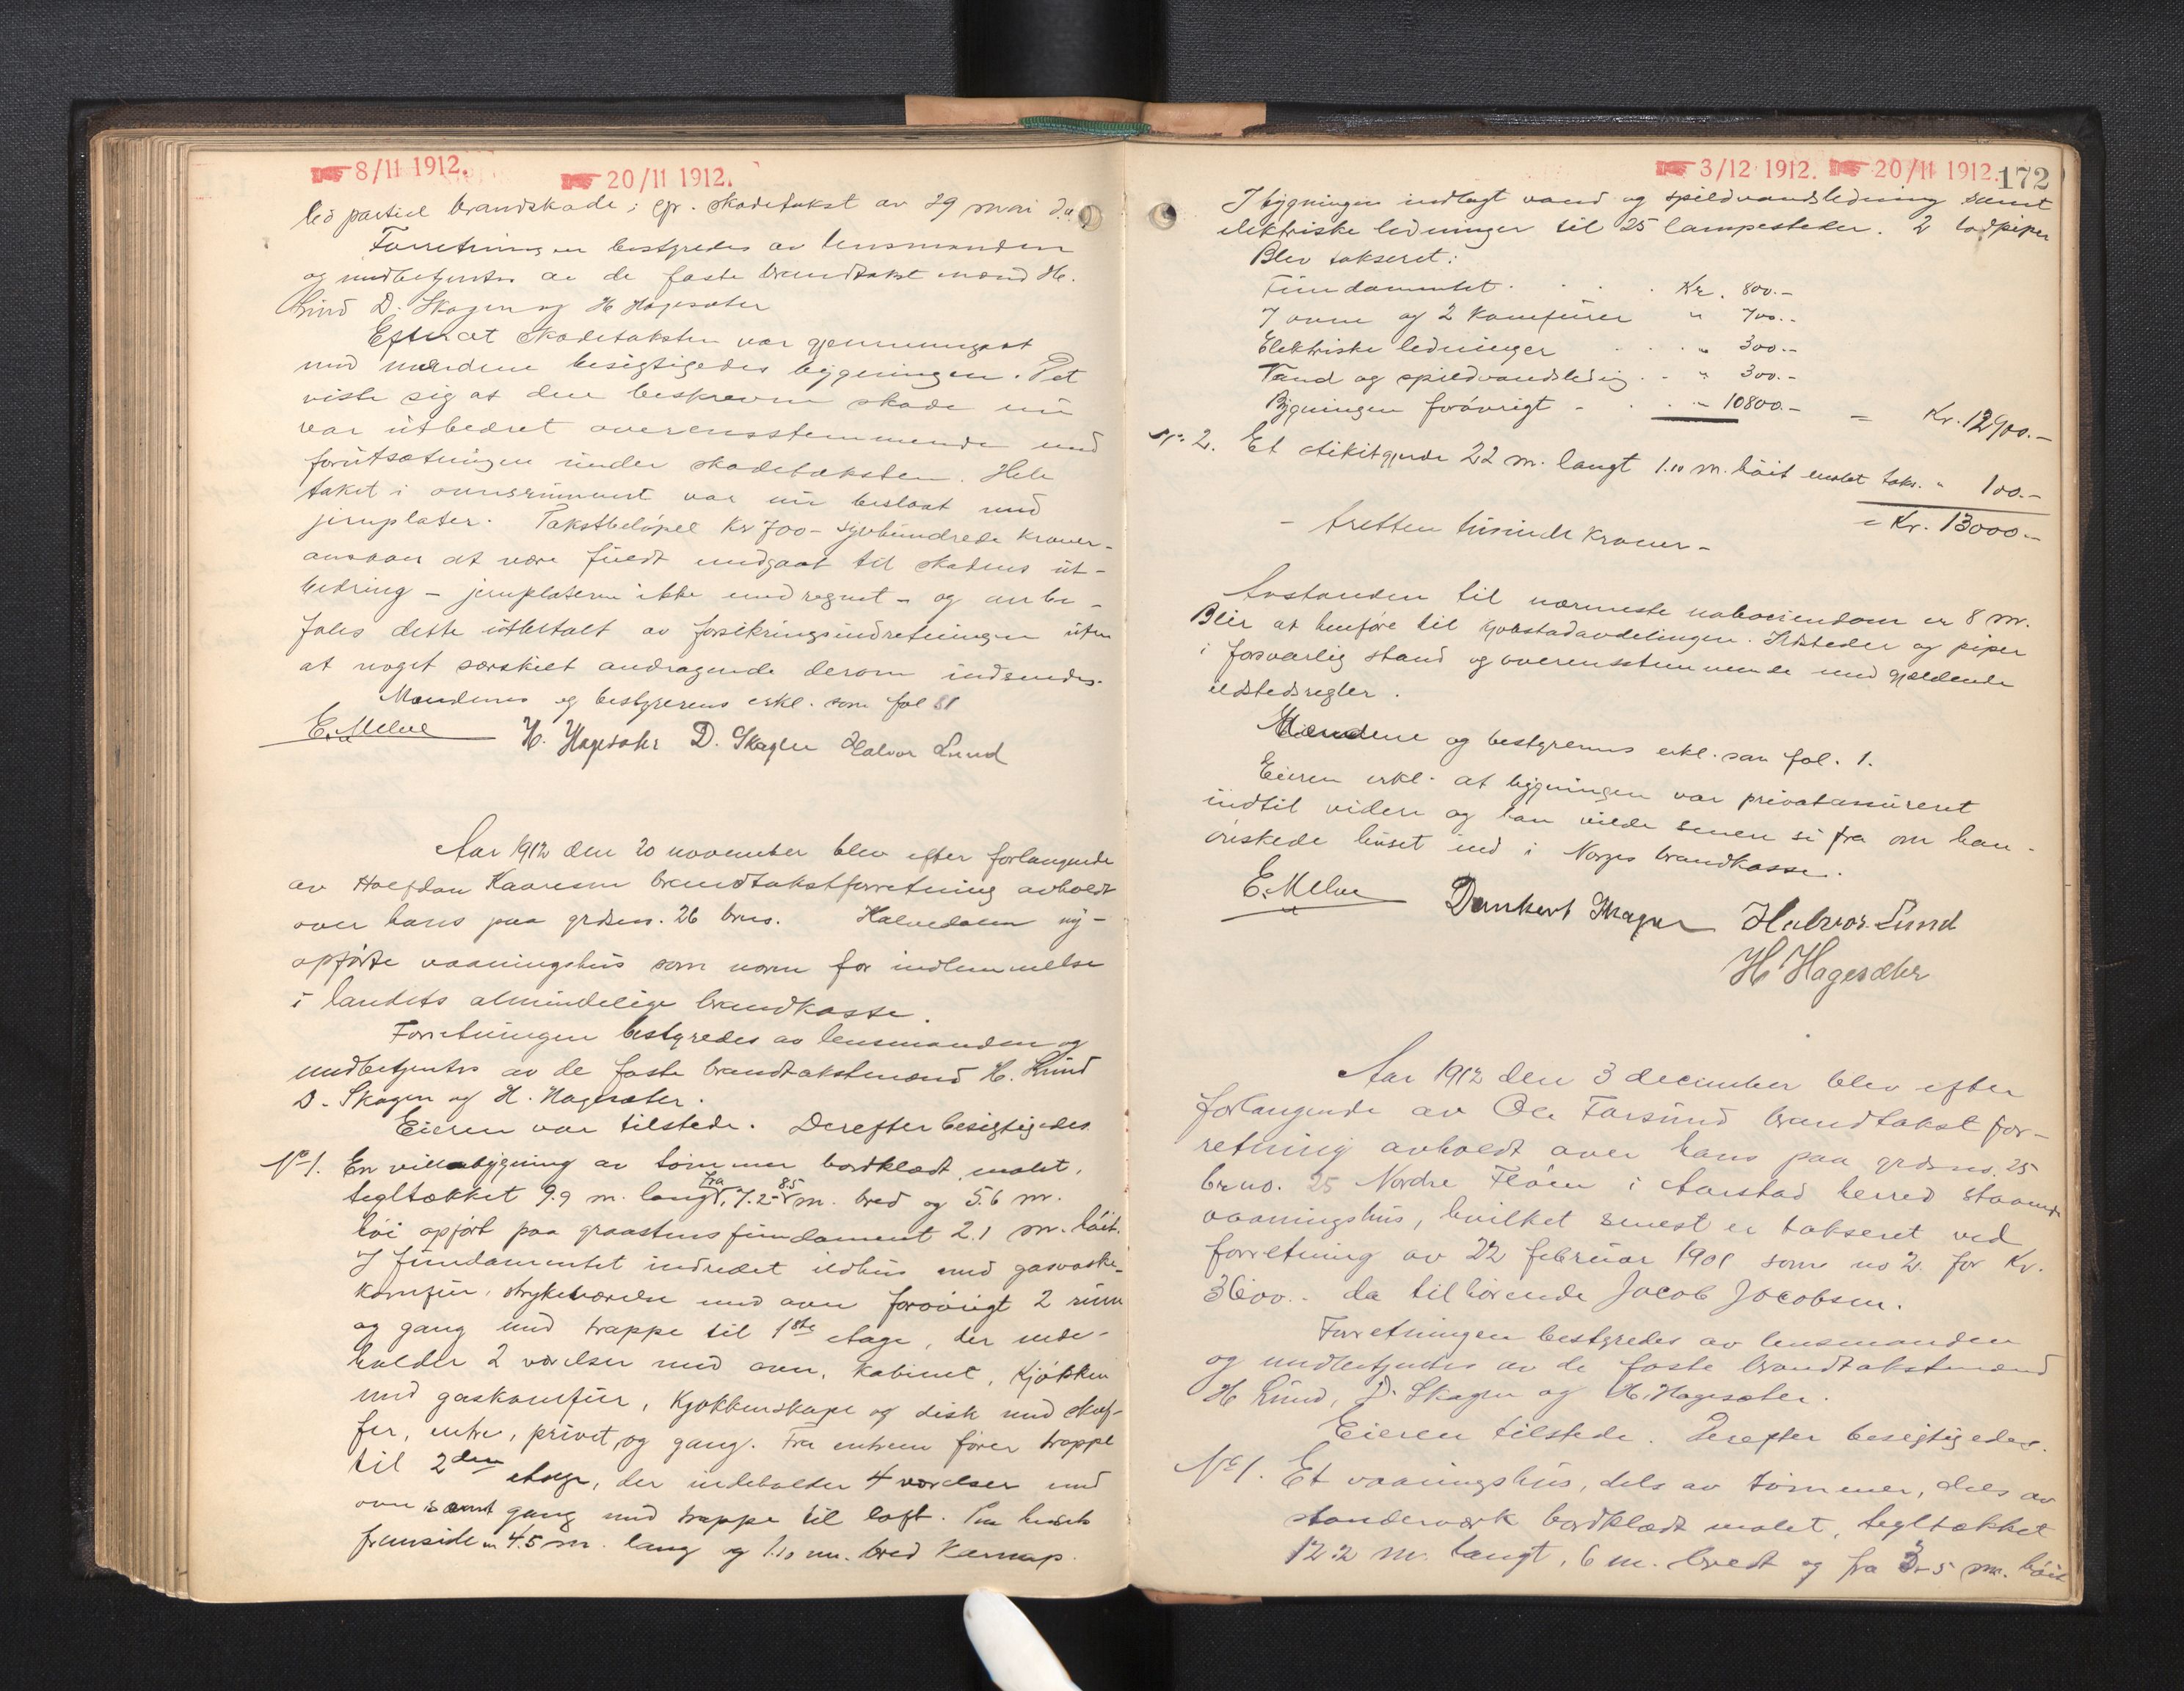 8/11 1912.
20/11 1912.
led partiel brandskade; cfr. skadetakst av 29 mai d.a.
Forretningen bestyredes av lensmanden
og medbetjentes av de faste brandtakstmænd H.
Lund D. Skagen og H Hagesæter
Efterat skadetaksten var gjennemgaat
med mændene besigtigedes bygningen. Det
viste sig at den beskrevne skade nu
var utbedret overensstemmende med
forutsætningen under skadetaksten. Hele
taket i ovnsrummet var nu beslaat med
jernplater. Takstbeløpet Kr 700 - syvhundrede kroner -
ansaaes at være fuldt medgaat til skadens ut-
bedring - jernplaterne ikke medregnet - og anbe-
fales dette utbetalt av forsikringsindretningen uten
at noget særskilt andragende derom indsendes.
Mændenes og bestyrerens erkl. som fol 81
E. Melve H. Hagesæter D. Skagen Halvor Lund
Aar 1912 den 20 november blev efter forlangende
av Halfdan Kaaresen brandtakstforretning avholdt
over hans paa grdsno. 26 brno. Kalvedalen ny-
opførte vaaningshus som norm for indlemmelse
i landets almindelige brandkasse.
Forretningen bestyredes av lensmanden og
medbetjentes av de faste brandtakstmænd H. Lund
D. Skagen og H. Hagesæter.
Eieren var tilstede. Derefter besigtigedes
No 1. En villabygning av tømmer bordklædt, malet,
tegltækket 9.9 m. lang, fra 7.2 - 8.5 m. bred og 5.6 m.
høi opført paa graastensfundament 2.1 m. høit.
I fundamentet indredet ildhus med gasvaske-
komfur, strykeværelse med ovn forøvrigt 2 rum
og gang med trappe til 1ste etage, der inde-
holder 2 værelser med ovn, kabinet, kjøkken
med gaskomfur, kjøkkenskape og disk med skuf-
fer, entre, privet, og gang. Fra entreen fører trappe
til 2den etage, der indeholder 4 værelser med
ovn samt gang med trappe til loft. Paa husets
fremside en 4.5 m. lang og 1.10 m. bred karnap.
3/12 1912. 20/11 1912. 172
I bygningen indlagt vand og spildvandsledning samt
elektriske ledninger til 25 lampesteder. 2 lodpiper
Blev takseret:
Fundamentet . . . . Kr. 800.-
7 ovne og 2 komfurer " 700.-
Elektriske ledninger . . . " 300.-
Vand og spildvandsledig. . . " 300.-
Bygningen forøvrigt - . . " 10800.- = Kr. 12900.-
No 2. Et stakitgjerde 22 m. langt 1.10 m. høit malet taks. " 100.-
= Kr. 13000.-
- tretten tusinde kroner -
Avstanden til nærmeste naboeiendom er 8 m.
Blir at henføre til kjøbstadavdelingen. Ildsteder og piper
i forsvarlig stand og overensstemmende med gjældende
ildstedsregler.
Mændene og bestyrerens erkl. som fol. 1.
Eieren erkl. at bygningen var privatassureret
indtil videre og han vilde senere si fra om han
ønskede huset ind i Norges brandkasse.
E. Melve Dankert Skagen Halvor Lund
H Hagesæter
Aar 1912 den 3 december blev efter
forlangende av Ole Farsund brandtakstfor-
retning avholdt over hans paa grdsno. 25
brno. 25 Nordre Fløien i Aarstad herred staaende
vaaningshus, hvilket senest er takseret ved
forretning av 22 februar 1901 som no 2 for Kr.
3600.- da tilhørende Jacob Jacobsen.
Forretningen bestyredes av lensmanden
og medbetjentes av de faste brandtakstmænd
H Lund, D. Skagen og H. Hagesæter.
Eieren tilstede. Derefter besigtigedes.
No 1. Et vaaningshus, dels av tømmer, dels av
standerværk bordklædt malet, tegltækket
12.2 m. langt, 6 m. bredt og fra 3 - 5 m. høit